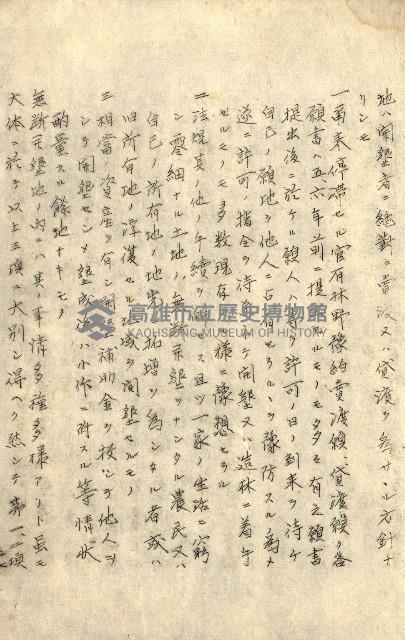 地ハ開墾者ニ絶對ニ賣渡又ハ貸渡ヲ為サヽル方針ナ
リシモ
一、爾来停滞セル官有林野豫約賣渡願貸渡願ノ各
願書ハ五六年前ニ提出セルモノモタヽ有之願書
提出後ニ於ケル願人ハ許可ノ日ノ到来ヲ待ケ
自己ノ願地ヲ他人ニ占有セラルヽヲ豫防スル為メ
遂ニ許可ノ指令ヲ待タス開墾又ハ造林ニ着手
セルモノモ多数現存スル様ニ豫想セラル
二、法規其ノ他ノ手續ヲ經ス且ツ一家ノ生活ニ窮
シ零細ナル土地ノ無斷開墾ヲナシタル農民又ハ
自己ノ所有地ノ地先ヲ拓增シ為シタル者或ハ
旧所有地ノ浮復セル地域ヲ開墾セルモノ
三、相當資産ヲ有シ開墾補助金ヲ投シテ他人ヲ
シテ開墾セシメ墾成後ハ小作ニ附スル等情狀
酌量スル餘地ナキモノ
無斷開墾地内ニハ其ノ事情多種多様アリト虽モ
大体ニ於テ以上三項ニ大別シ得ヘク然シテ第一二項
高雄市立歷史博物館
KAOHSIUNG MUSEUM OF HISTORY